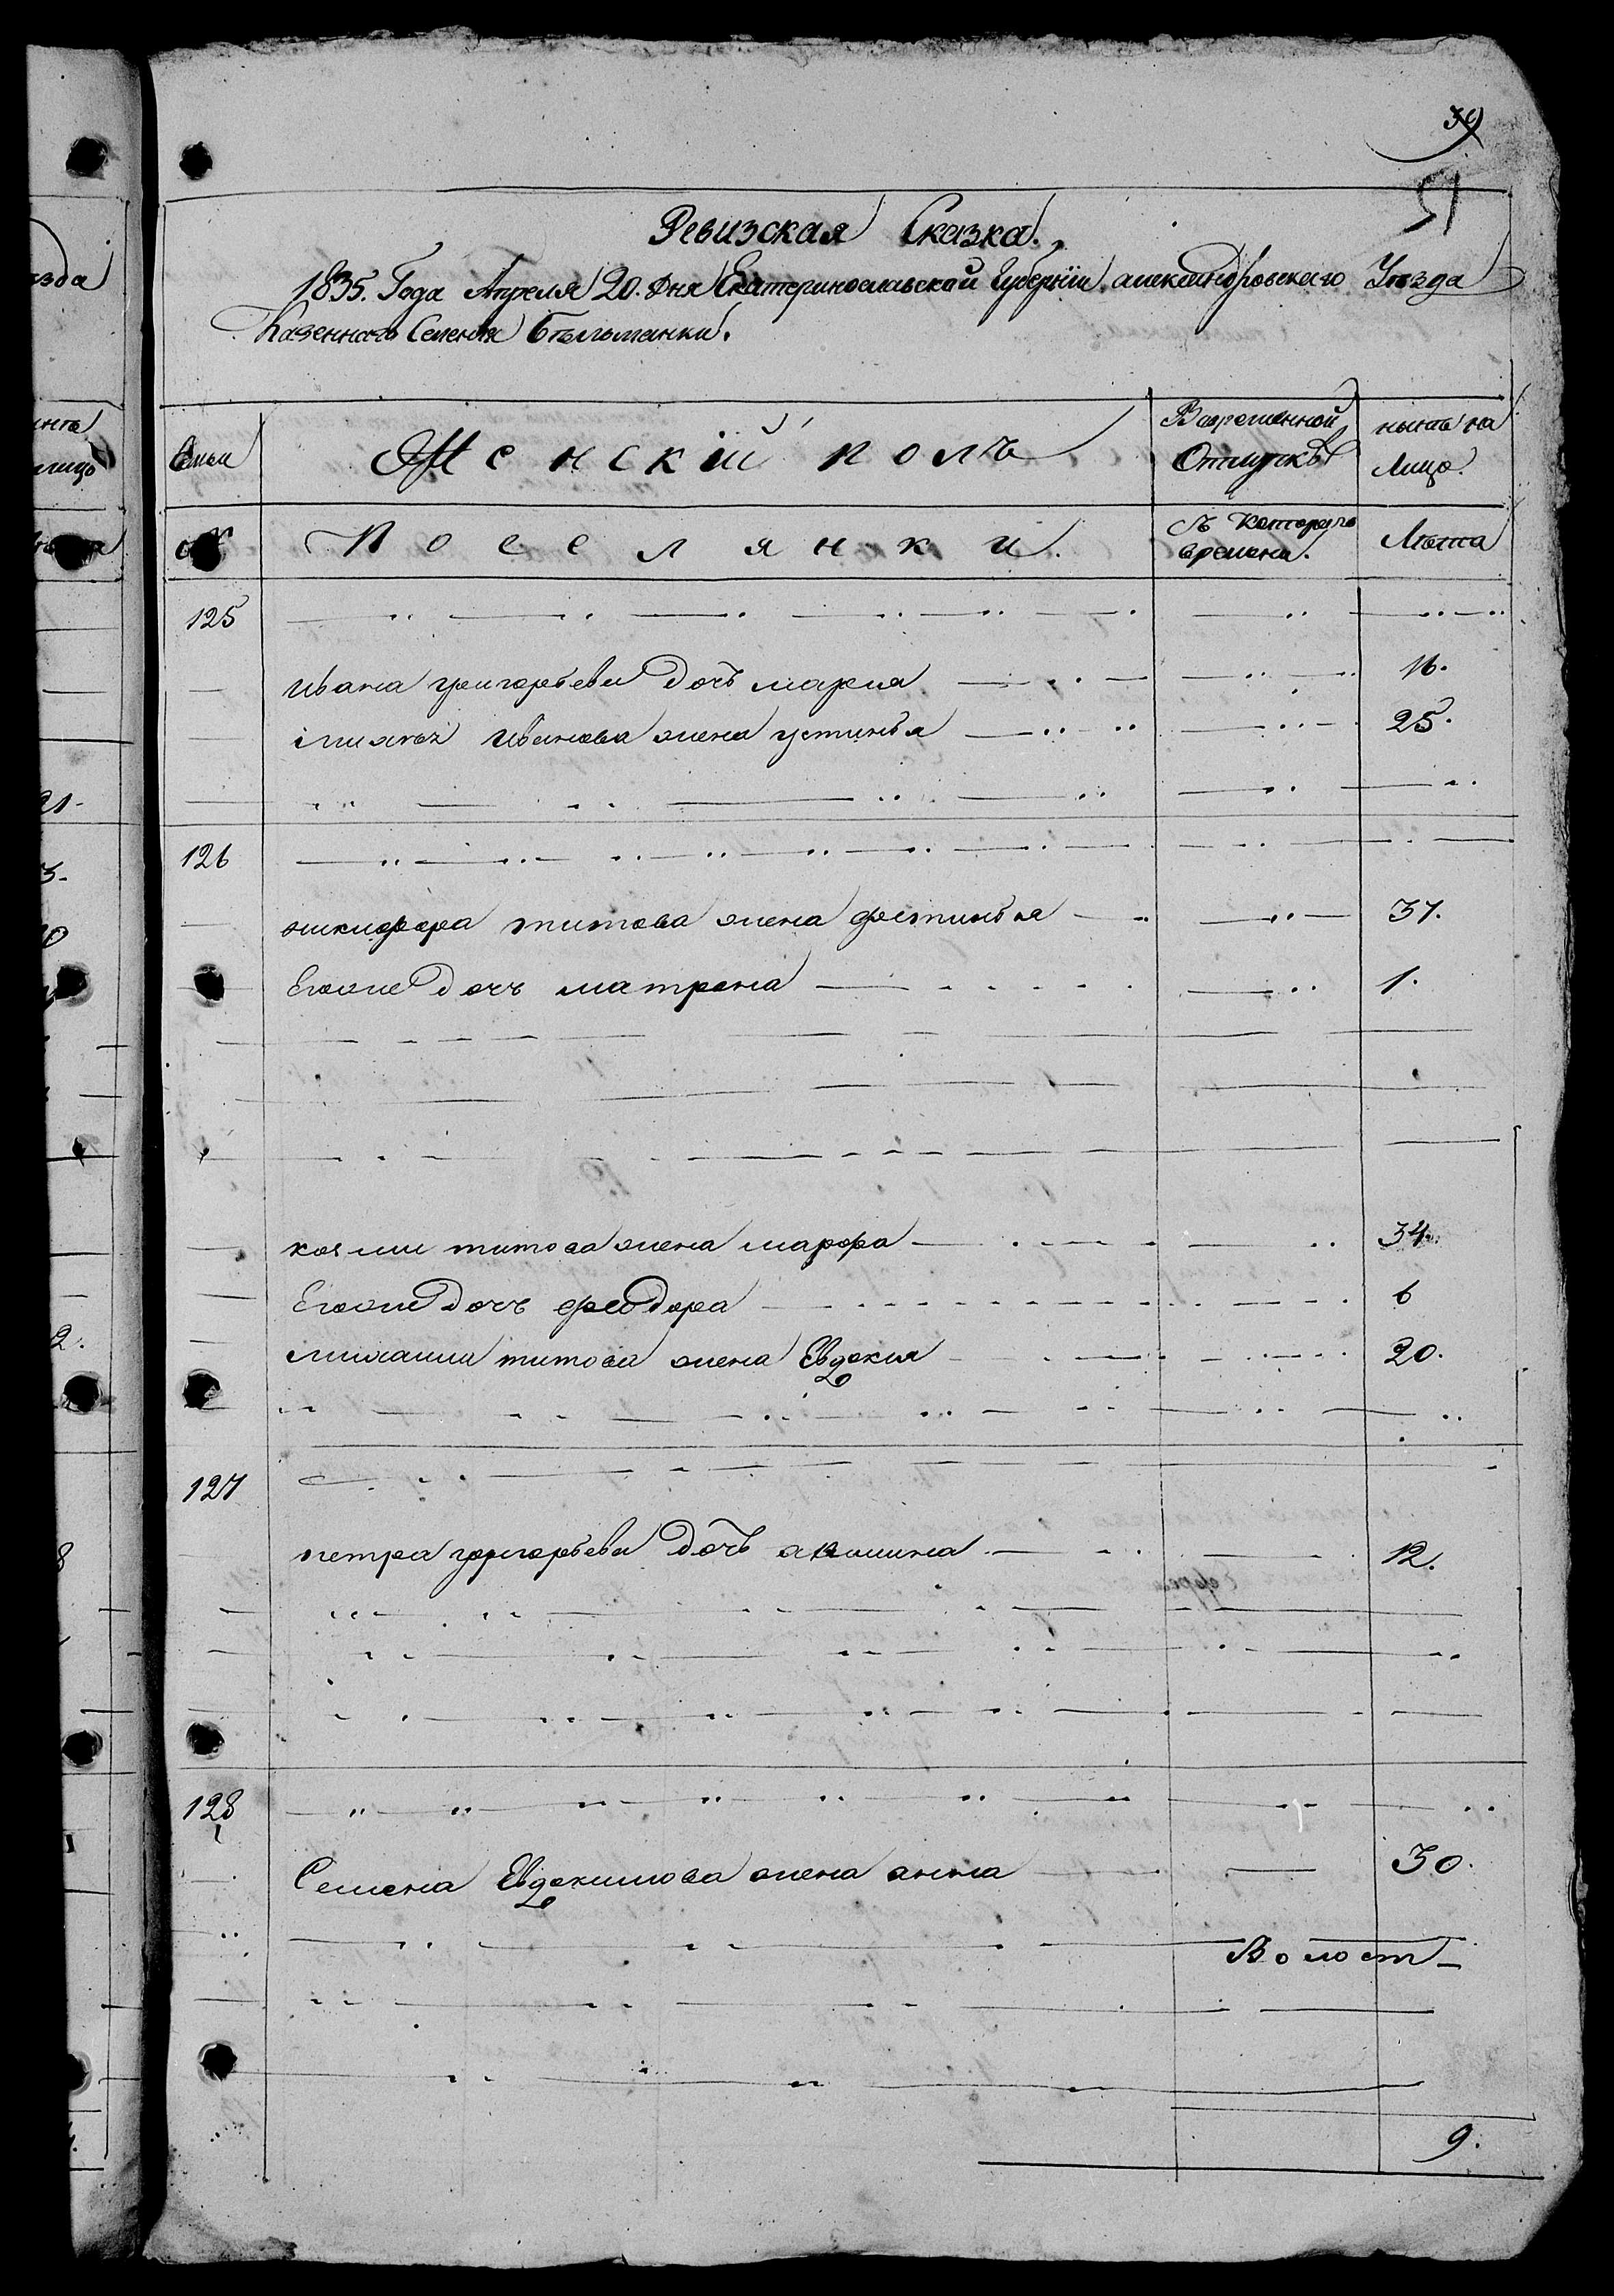 39
51
Ревизская Сказка.
1835. Года Апреля 20. дня Екатеринославской Губернїи александровскаго Уѣзда
Казеннаго Селенія Бѣльманки.
Семьи
Женскій полъ
Вовременной Отлучкѣ
нынѣ на Лицо.
№
Поселянки.
Съ котораго времени.
Лѣта
125
Ивана григорьева дочь мария 16.
Иванова жена устинья 25.
126
никифора титова жена фестинья 37.
Егоже дочь матрона 1.
козми титова жена марфа 34.
Егоже дочь феодора 6
титова жена Евдокия 20.
127
петра григорьева дочь акилина 12.
128
Семена Евдокимова жена анна 30.
Волост
9.